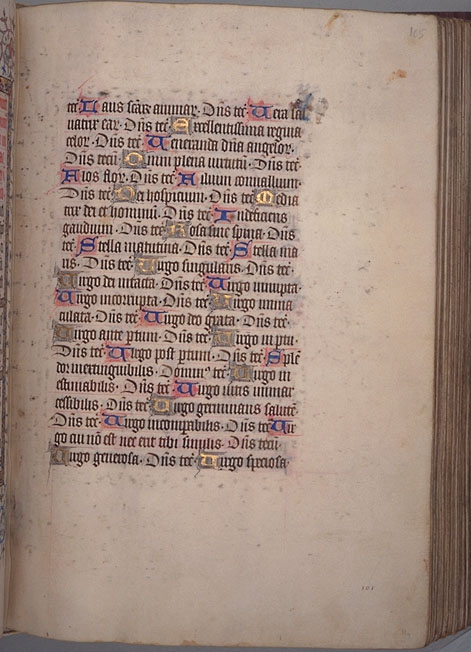 105
tec̄ Laus sc̄arū animar̄. Dn̄s tec̄ Vera sal
uatrix ear̄. Dn̄s tec̄ Excellentissima regina
celor̄. Dn̄s tec̄ Veneranda dn̄a angelor̄.
Dn̄s tecū plena virtutū. Dn̄s tec̄
flos flor̄. Dn̄s tec̄ lilium conuallium.
Dn̄s tec̄ Dei hospicium. Dn̄s tec̄ Media
trix dei et hominū. Dn̄s tec̄ Indeficiens
gaudium. Dn̄s tec̄ Rosa sine spina. Dn̄s
tec̄ Stella matutina. Dn̄s tec̄ Stella ma
ris. Dn̄s tec̄ Virgo singularis. Dn̄s tec̄
Virgo dei intacta. Dn̄s tec̄ Virgo innupta
Virgo incorrupta. Dn̄s tec̄ Virgo imma
culata. Dn̄s tec̄ Virgo deo grata. Dn̄s tec̄
Virgo ante ptum. Dn̄s tec̄ Virgo in ptu.
Dn̄s tec̄ Virgo post ptum. Dn̄s tec̄ Sple
dor inextinguibilis. Dominꝰ tec̄ Virgo in
estimabilis. Dn̄s tec̄ Virgo lucis inmar
cessibilis. Dn̄s tec̄ Virgo germinans salutē
Dn̄s tec̄ Virgo incomparabilis. Dn̄s tec̄ Vir
go cui nō est nec erit tibi similis. Dn̄s tecū
Virgo generosa. Dn̄s tec̄ Virgo speciosa
101